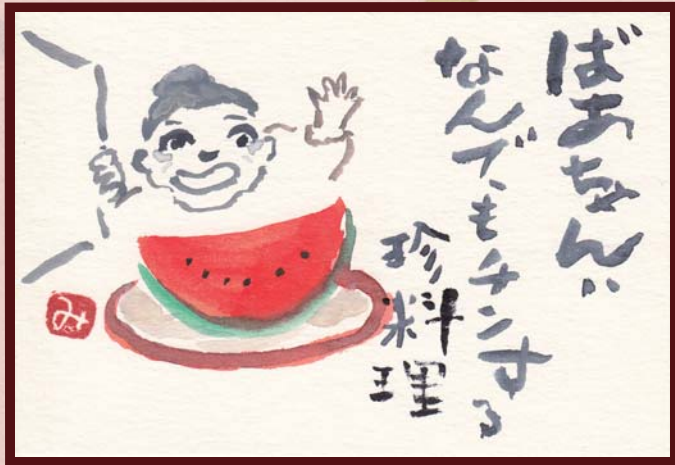 ばあちゃん
なんでもチンする
珍料理
み